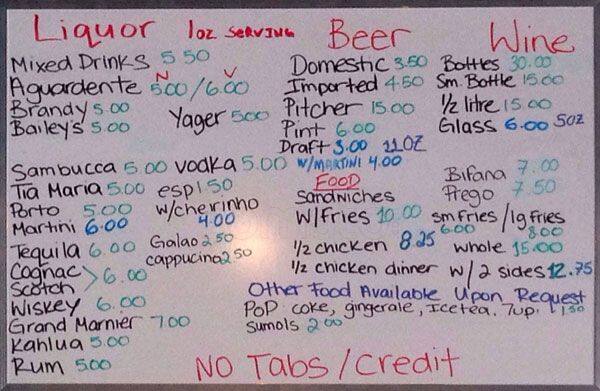 Liquor 1oz SERVING Beer Wine
Mixed Drinks 5 50 Domestic 3.50 Bottles 30.00
N V
Aguardente 5.00/6.00 Imported 4.50 Sm. Bottle 15.00
Brandy 5.00 Yager 5.00 Pitcher 15.00 1/2 litre 15.00
Bailey's 5.00 Pint 6.00 Glass 6.00 5oz
Draft 3.00 11oz
Sambucca 5.00 vodka 5.00 w/MARTINI 4.00
Tia Maria 5.00 esp 1.50 FOOD Bifana 7.00
Porto 5.00 w/cherinho 4.00 Sandwiches Prego 7.50
Martini 6.00 W/Fries 10.00 sm fries / lg fries
6.00 8.00
Tequila 6.00 Galao 2.50 1/2 chicken 8.25 whole 15.00
Cognac
Scotch > 6.00 cappucino 2.50 1/2 chicken dinner w/ 2 sides 12.75
Wiskey 6.00 Other Food Available Upon Request
Grand Marnier 7.00 PoP coke, gingerale, Icetea, 7up. 1.50
Kahlua 5.00 Sumols 2.00
Rum 5.00 NO Tabs/Credit